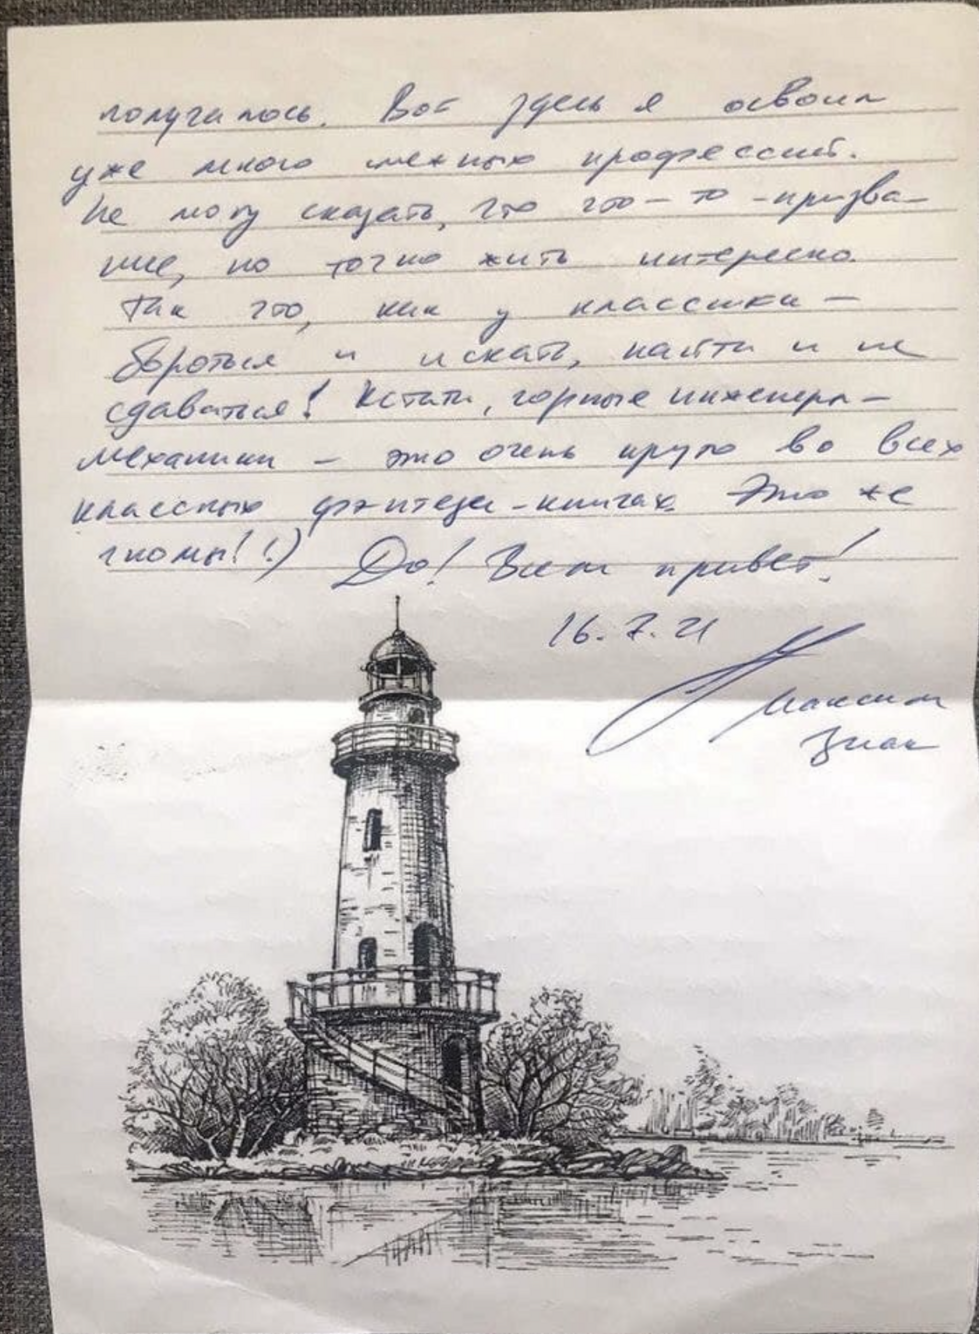 получалось. Вот здесь я освоил
уже много смежных профессий.
Не могу сказать, что это-то - призва-
ние, но точно жить интересно.
Так что, как у классика -
бороться и искать, найти и не
сдаваться! Кстати, горные инженеры-
механики - это очень круто во всех
классных фэнтези-книгах. Это же
гномы! :) До! Всем привет!
16.7.21
Максим
Знак